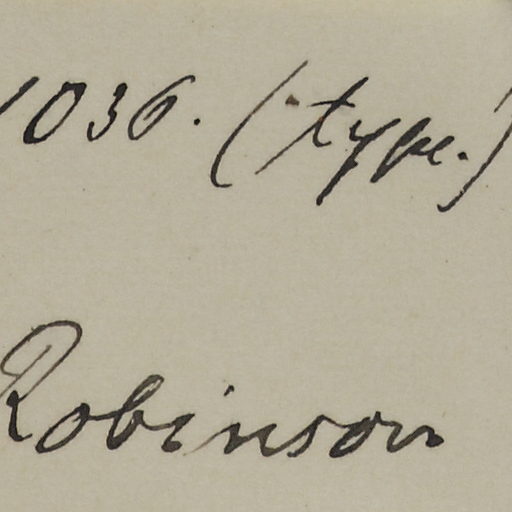 1036. (type.)
Robinson